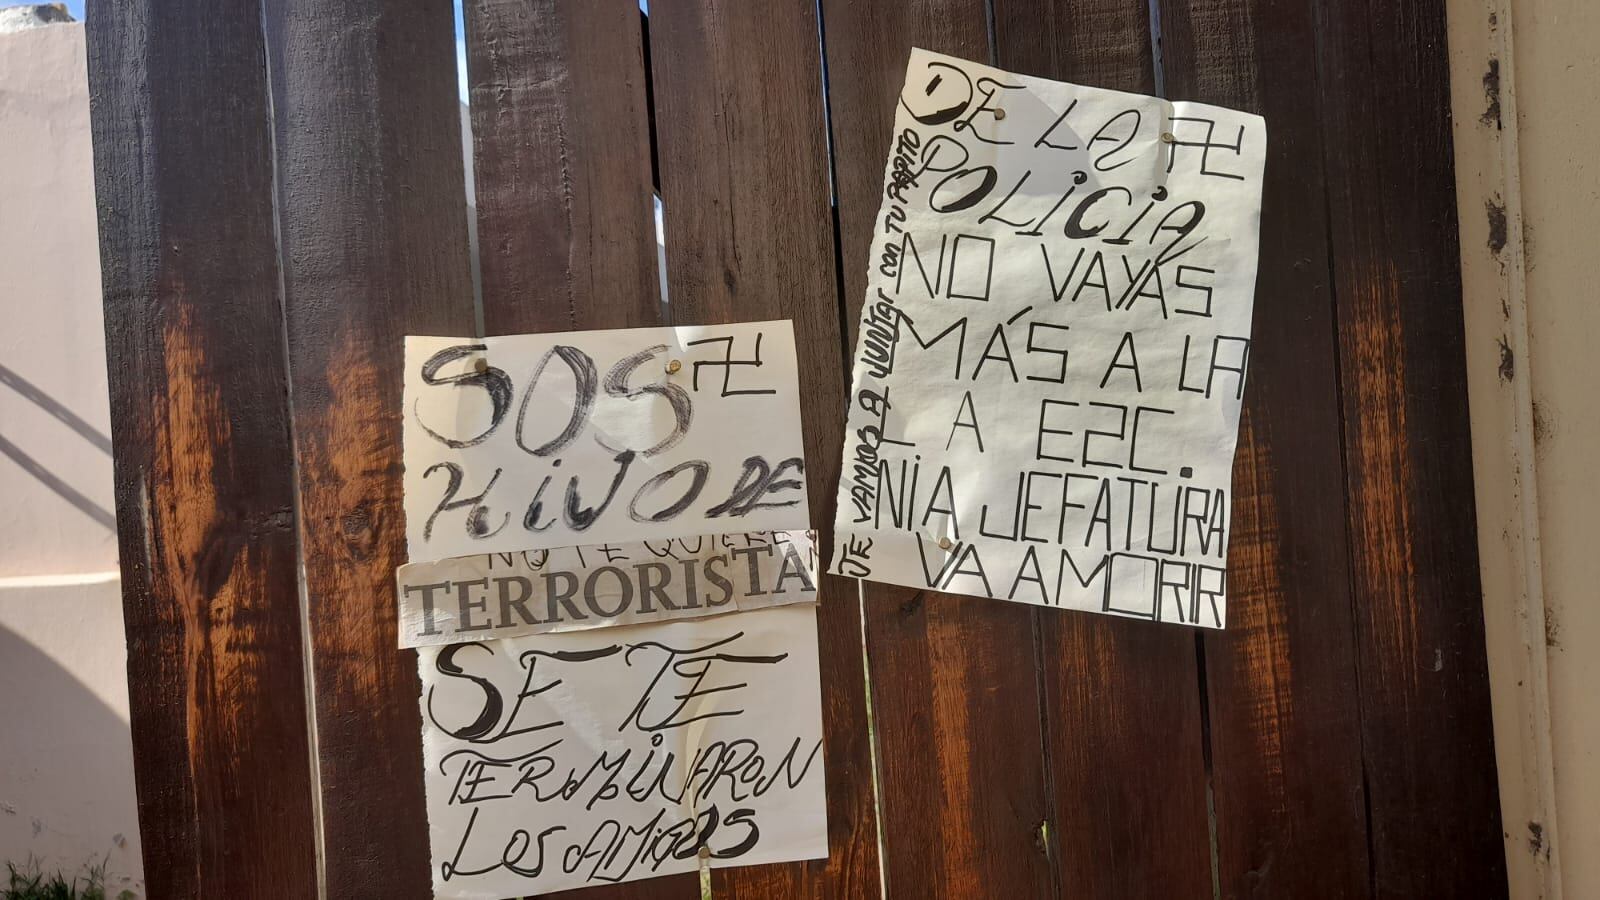 SOS 卍
HIJO DE
NO TE QUIERE
TERRORISTA
SE TE
TERMINARON
LOS AMIGOS
DE LA 卍
POLICIA
NO VAYAS
MÁS A LA
LA E2C.
NI A JEFATURA
VA A MORIR
TE VAMOS A JUNTAR CON TU PAPITO